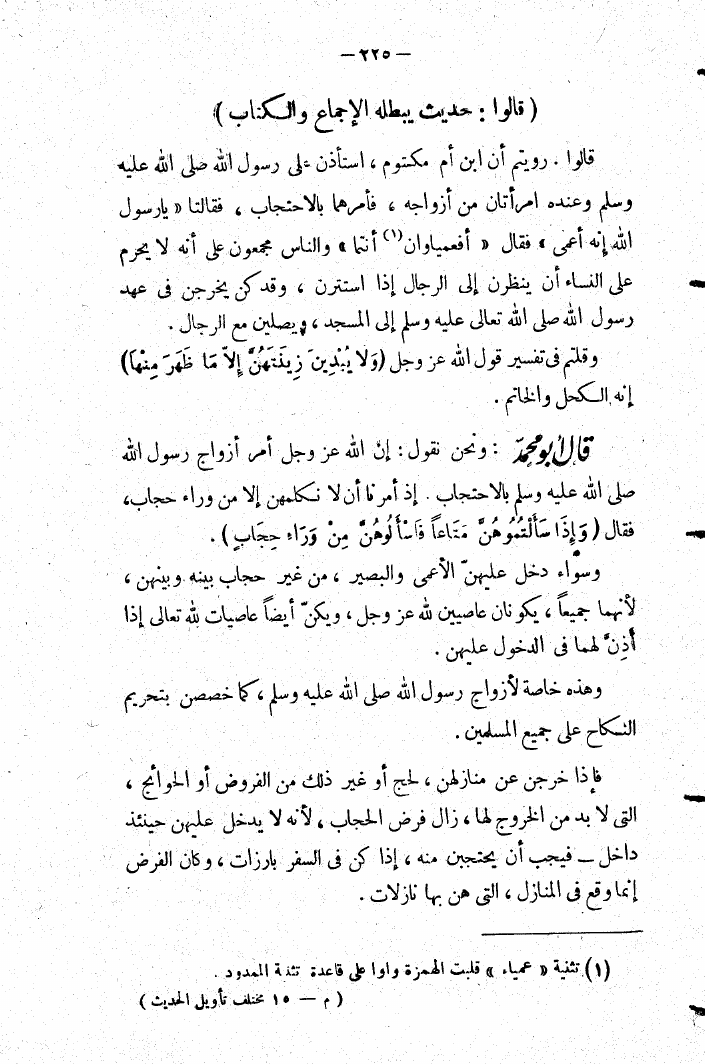 — ٢٢٥ —
( قالوا : حديث يبطله الإجماع والكتاب )
قالوا . رويتم أن ابن أم مكتوم ، استأذن على رسول الله صلى الله عليه
وسلم وعنده امرأتان من أزواجه ، فأمرهما بالاحتجاب ، فقالتا « يارسول
الله إنه أعمى » فقال « أفعمياوان (١) أنتما » والناس مجمعون على أنه لا يحرم
على النساء أن ينظرن إلى الرجال إذا استترن ، وقد كن يخرجن فى عهد
رسول الله صلى الله تعالى عليه وسلم إلى المسجد ، ويصلين مع الرجال .
وقلتم فى تفسير قول الله عز وجل (وَلَا يُبْدِينَ زِينَتَهُنَّ إِلاَّ مَا ظَهَرَ مِنْهَا)
إنه الكحل والخاتم .
قال أبو محمد : ونحن نقول : إن الله عز وجل أمر أزواج رسول الله
صلى الله عليه وسلم بالاحتجاب . إذ أمرنا أن لا نكلمهن إلا من وراء حجاب،
فقال ( وَإِذَا سَأَلْتُمُوهُنَّ مَتَاعاً فَاسْأَلُوهُنَّ مِنْ وَرَاءِ حِجَابٍ ) .
وسواء دخل عليهنّ الأعمى والبصير ، من غير حجاب بينه وبينهن ،
لأنهما جميعاً ، يكونان عاصيين لله عز وجل ، ويكنّ أيضاً عاصيات لله تعالى إذا
أَذِنَّ لهما فى الدخول عليهن .
وهذه خاصة لأزواج رسول الله صلى الله عليه وسلم ، كما خصصن بتحريم
النكاح على جميع المسلمين .
فإذا خرجن عن منازلهن ، لحج أو غير ذلك من الفروض أو الحوائج ،
التى لا بد من الخروج لها ، زال فرض الحجاب ، لأنه لا يدخل عليهن حينئذ
داخل — فيجب أن يحتجبن منه ، إذا كن فى السفر بارزات ، وكان الفرض
إنما وقع فى المنازل ، التى هن بها نازلات .
(١) تثنية « عمياء » قلبت الهمزة واوا على قاعدة تثنية الممدود .
( م — ١٥ مختلف تأويل الحديث )